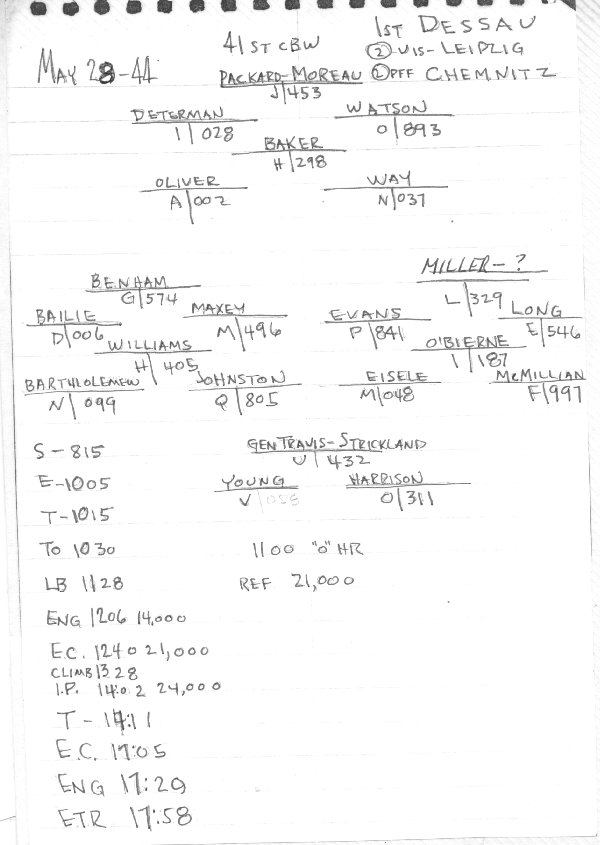 MAY 28-44
41ST CBW
1ST DESSAU
② VIS-LEIPZIG
PACKARD-MOREAU ① PFF CHEMNITZ
J|453
DETERMAN WATSON
I|028 O|893
BAKER
H|298
OLIVER WAY
A|002 N|037
MILLER-?
BENHAM L|329
G|574
BAILIE MAXEY EVANS LONG
D|006 M|496 P|841 E|546
WILLIAMS O'BIERNE
H|405 I|187
BARTHOLOMEW JOHNSTON EISELE McMILLIAN
N|099 Q|805 M|048 F|997
S-815 GEN TRAVIS-STRICKLAND
U|432
E-1005 YOUNG HARRISON
V|058 O|311
T-1015
TO 1030 1100 "O" HR
LB 1128 REF 21,000
ENG 1206 14,000
E.C. 1240 21,000
CLIMB 1328
I.P. 1402 24,000
T-14:11
E.C. 17:05
ENG 17:29
ETR 17:58